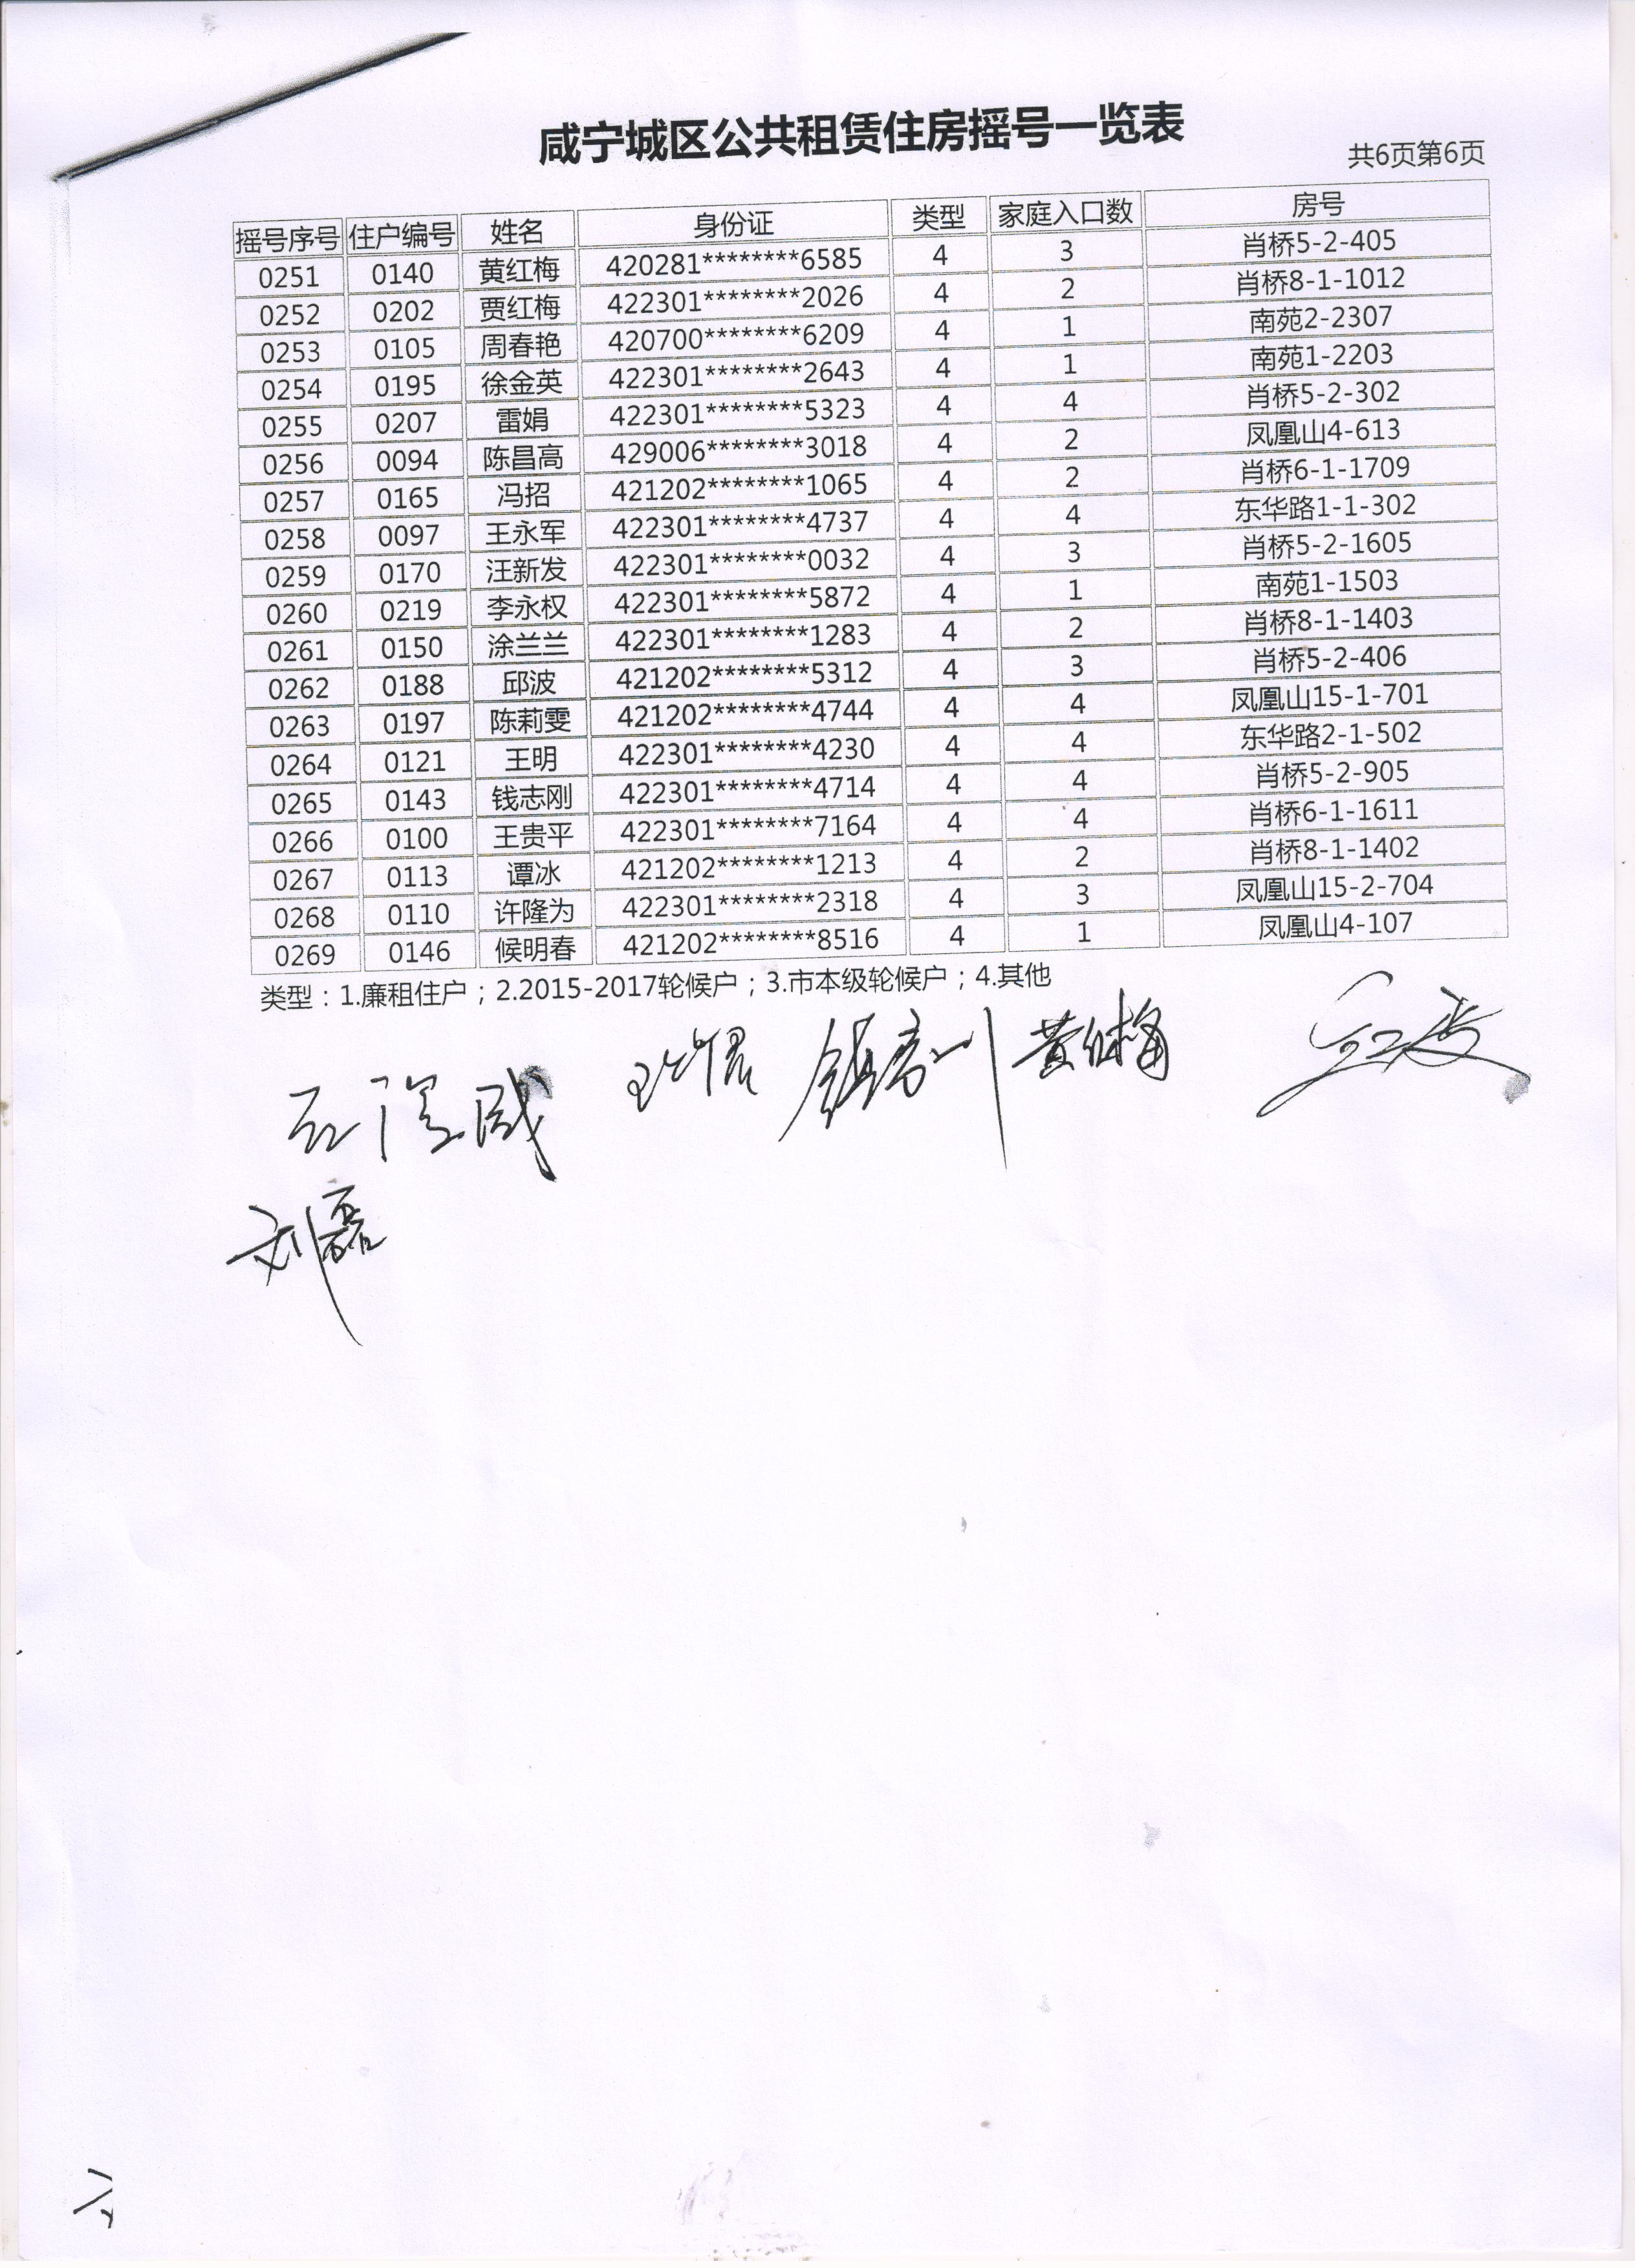 咸宁城区公共租赁住房摇号一览表
共6页第6页
摇号序号 住户编号 姓名 身份证 类型 家庭入口数 房号
0251 0140 黄红梅 420281********6585 4 3 肖桥5-2-405
0252 0202 贾红梅 422301********2026 4 2 肖桥8-1-1012
0253 0105 周春艳 420700********6209 4 1 南苑2-2307
0254 0195 徐金英 422301********2643 4 1 南苑1-2203
0255 0207 雷娟 422301********5323 4 4 肖桥5-2-302
0256 0094 陈昌高 429006********3018 4 2 凤凰山4-613
0257 0165 冯招 421202********1065 4 2 肖桥6-1-1709
0258 0097 王永军 422301********4737 4 4 东华路1-1-302
0259 0170 汪新发 422301********0032 4 3 肖桥5-2-1605
0260 0219 李永权 422301********5872 4 1 南苑1-1503
0261 0150 涂兰兰 422301********1283 4 2 肖桥8-1-1403
0262 0188 邱波 421202********5312 4 3 肖桥5-2-406
0263 0197 陈莉雯 421202********4744 4 4 凤凰山15-1-701
0264 0121 王明 422301********4230 4 4 东华路2-1-502
0265 0143 钱志刚 422301********4714 4 4 肖桥5-2-905
0266 0100 王贵平 422301********7164 4 4 肖桥6-1-1611
0267 0113 谭冰 421202********1213 4 2 肖桥8-1-1402
0268 0110 许隆为 422301********2318 4 3 凤凰山15-2-704
0269 0146 候明春 421202********8516 4 1 凤凰山4-107
类型：1.廉租住户；2.2015-2017轮候户；3.市本级轮候户；4.其他
刘磊